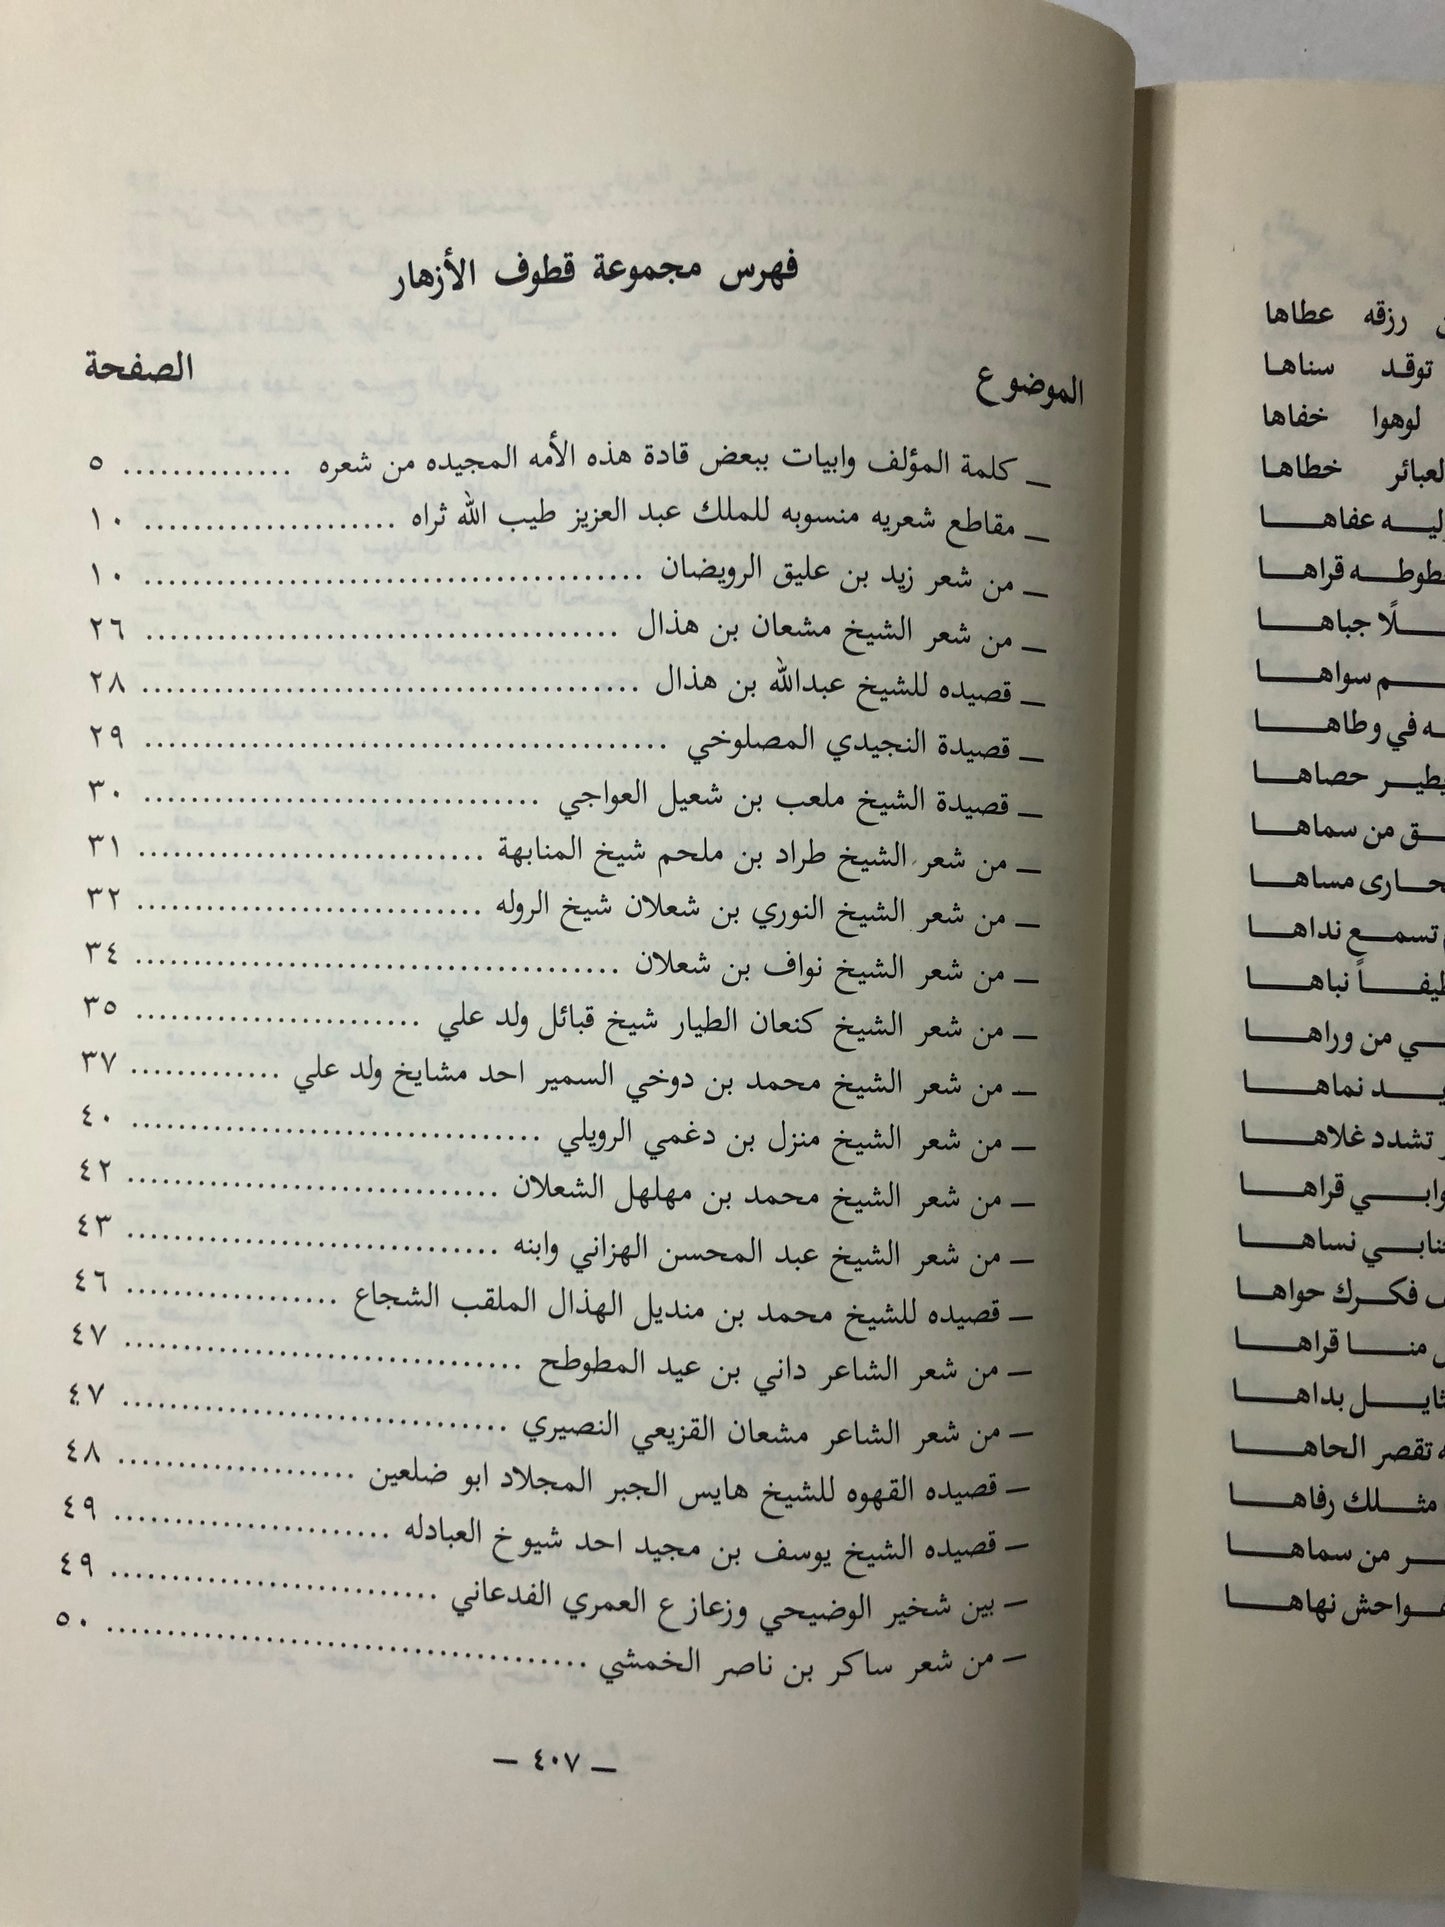 فهرس مجموعة قطوف الأزهار
الموضوع الصفحة
— كلمة المؤلف وابيات ببعض قادة هذه الأمه المجيده من شعره .............. ٥
— مقاطع شعريه منسوبه للملك عبد العزيز طيب الله ثراه ..................... ١٠
— من شعر زيد بن عليق الرويضان .......................................... ١٠
— من شعر الشيخ مشعان بن هذال ........................................ ٢٦
— قصيده للشيخ عبدالله بن هذال .......................................... ٢٨
— قصيدة النجيدي المصلوخي ............................................ ٢٩
— قصيدة الشيخ ملعب بن شعيل العواجي .................................. ٣٠
— من شعر الشيخ طراد بن ملحم شيخ المنابهة ............................. ٣١
— من شعر الشيخ النوري بن شعلان شيخ الروله ............................. ٣٢
— من شعر الشيخ نواف بن شعلان ......................................... ٣٤
— من شعر الشيخ كنعان الطيار شيخ قبائل ولد علي ........................ ٣٥
— من شعر الشيخ محمد بن دوخي السمير احد مشايخ ولد علي ............. ٣٧
— من شعر الشيخ منزل بن دغمي الرويلي ................................... ٤٠
— من شعر الشيخ محمد بن مهلهل الشعلان ................................ ٤٢
— من شعر الشيخ عبد المحسن الهزاني وابنه ................................ ٤٣
— قصيده للشيخ محمد بن منديل الهذال الملقب الشجاع .................. ٤٦
— من شعر الشاعر داني بن عيد المطوطح .................................. ٤٧
— من شعر الشاعر مشعان القزيعي النصيري ................................. ٤٧
— قصيده القهوه للشيخ هايس الجبر المجلاد ابو ضلعين .................... ٤٨
— قصيده الشيخ يوسف بن مجيد احد شيوخ العبادله ........................ ٤٩
— بين شخير الوضيحي وزعازع العمري الفدعاني ............................ ٤٩
— من شعر ساكر بن ناصر الخمشي ......................................... ٥٠
— ٤٠٧ —
رزقه عطاها
توقد سناها
لوهوا خفاها
خطاها
عفاها
قراها
جباها
سواها
في وطاها
حصاها
من سماها
مساها
تسمع نداها
نباها
من وراها
نماها
تشدد غلاها
قراها
نساها
فكرك حواها
منا قراها
بداها
تقصر الحاها
مثلك رفاها
من سماها
نهاها